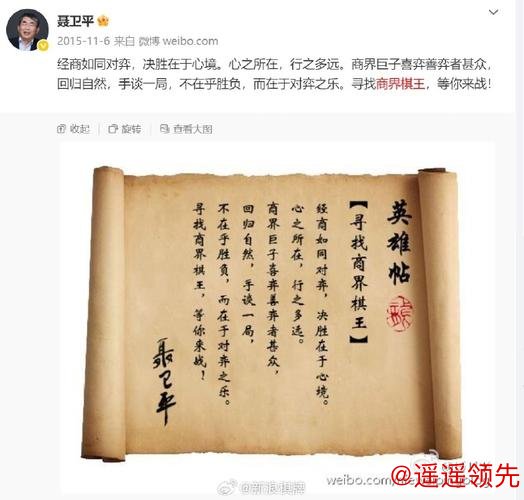 聂卫平
2015-11-6 来自 微博 weibo.com
经商如同对弈，决胜在于心境。心之所在，行之多远。商界巨子喜弈善弈者甚众，
回归自然，手谈一局，不在乎胜负，而在于对弈之乐。寻找商界棋王，等你来战！
收起 旋转 查看大图
英雄帖
【寻找商界棋王】
经商如同对弈，决胜在于心境。
心之所在，行之多远。
商界巨子喜弈善弈者甚众，
回归自然，手谈一局，
不在乎胜负，而在于对弈之乐。
寻找商界棋王，等你来战！
聂卫平
@新浪棋牌
weibo.com/
@遥遥领先